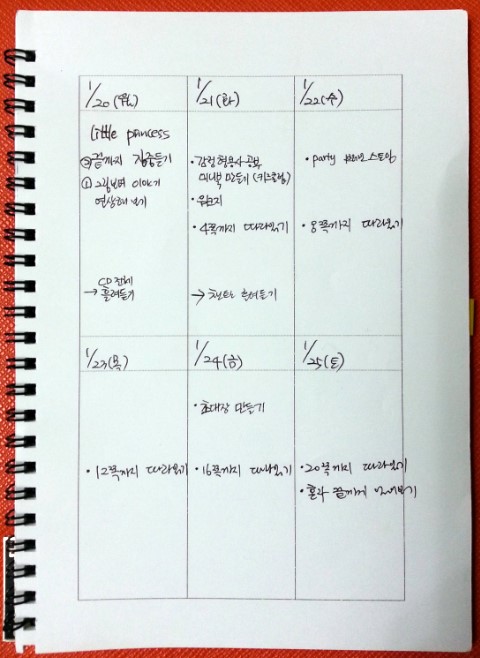 1/20(월)
little princess
② 끝까지 집중듣기
① 그림보며 이야기
연상해 보기
CD 전체
→ 흘려듣기
1/21(화)
· 감정형용사 공부
미니북 만들기(키즈클럽)
· 워크지
· 4쪽까지 따라읽기
→ 챈트 흘려듣기
1/22(수)
· party 브레인스토밍
· 8쪽까지 따라읽기
1/23(목)
· 12쪽까지 따라읽기
1/24(금)
· 초대장 만들기
· 16쪽까지 따라읽기
1/25(토)
· 20쪽까지 따라읽기
· 혼자 끝까지 읽어보기